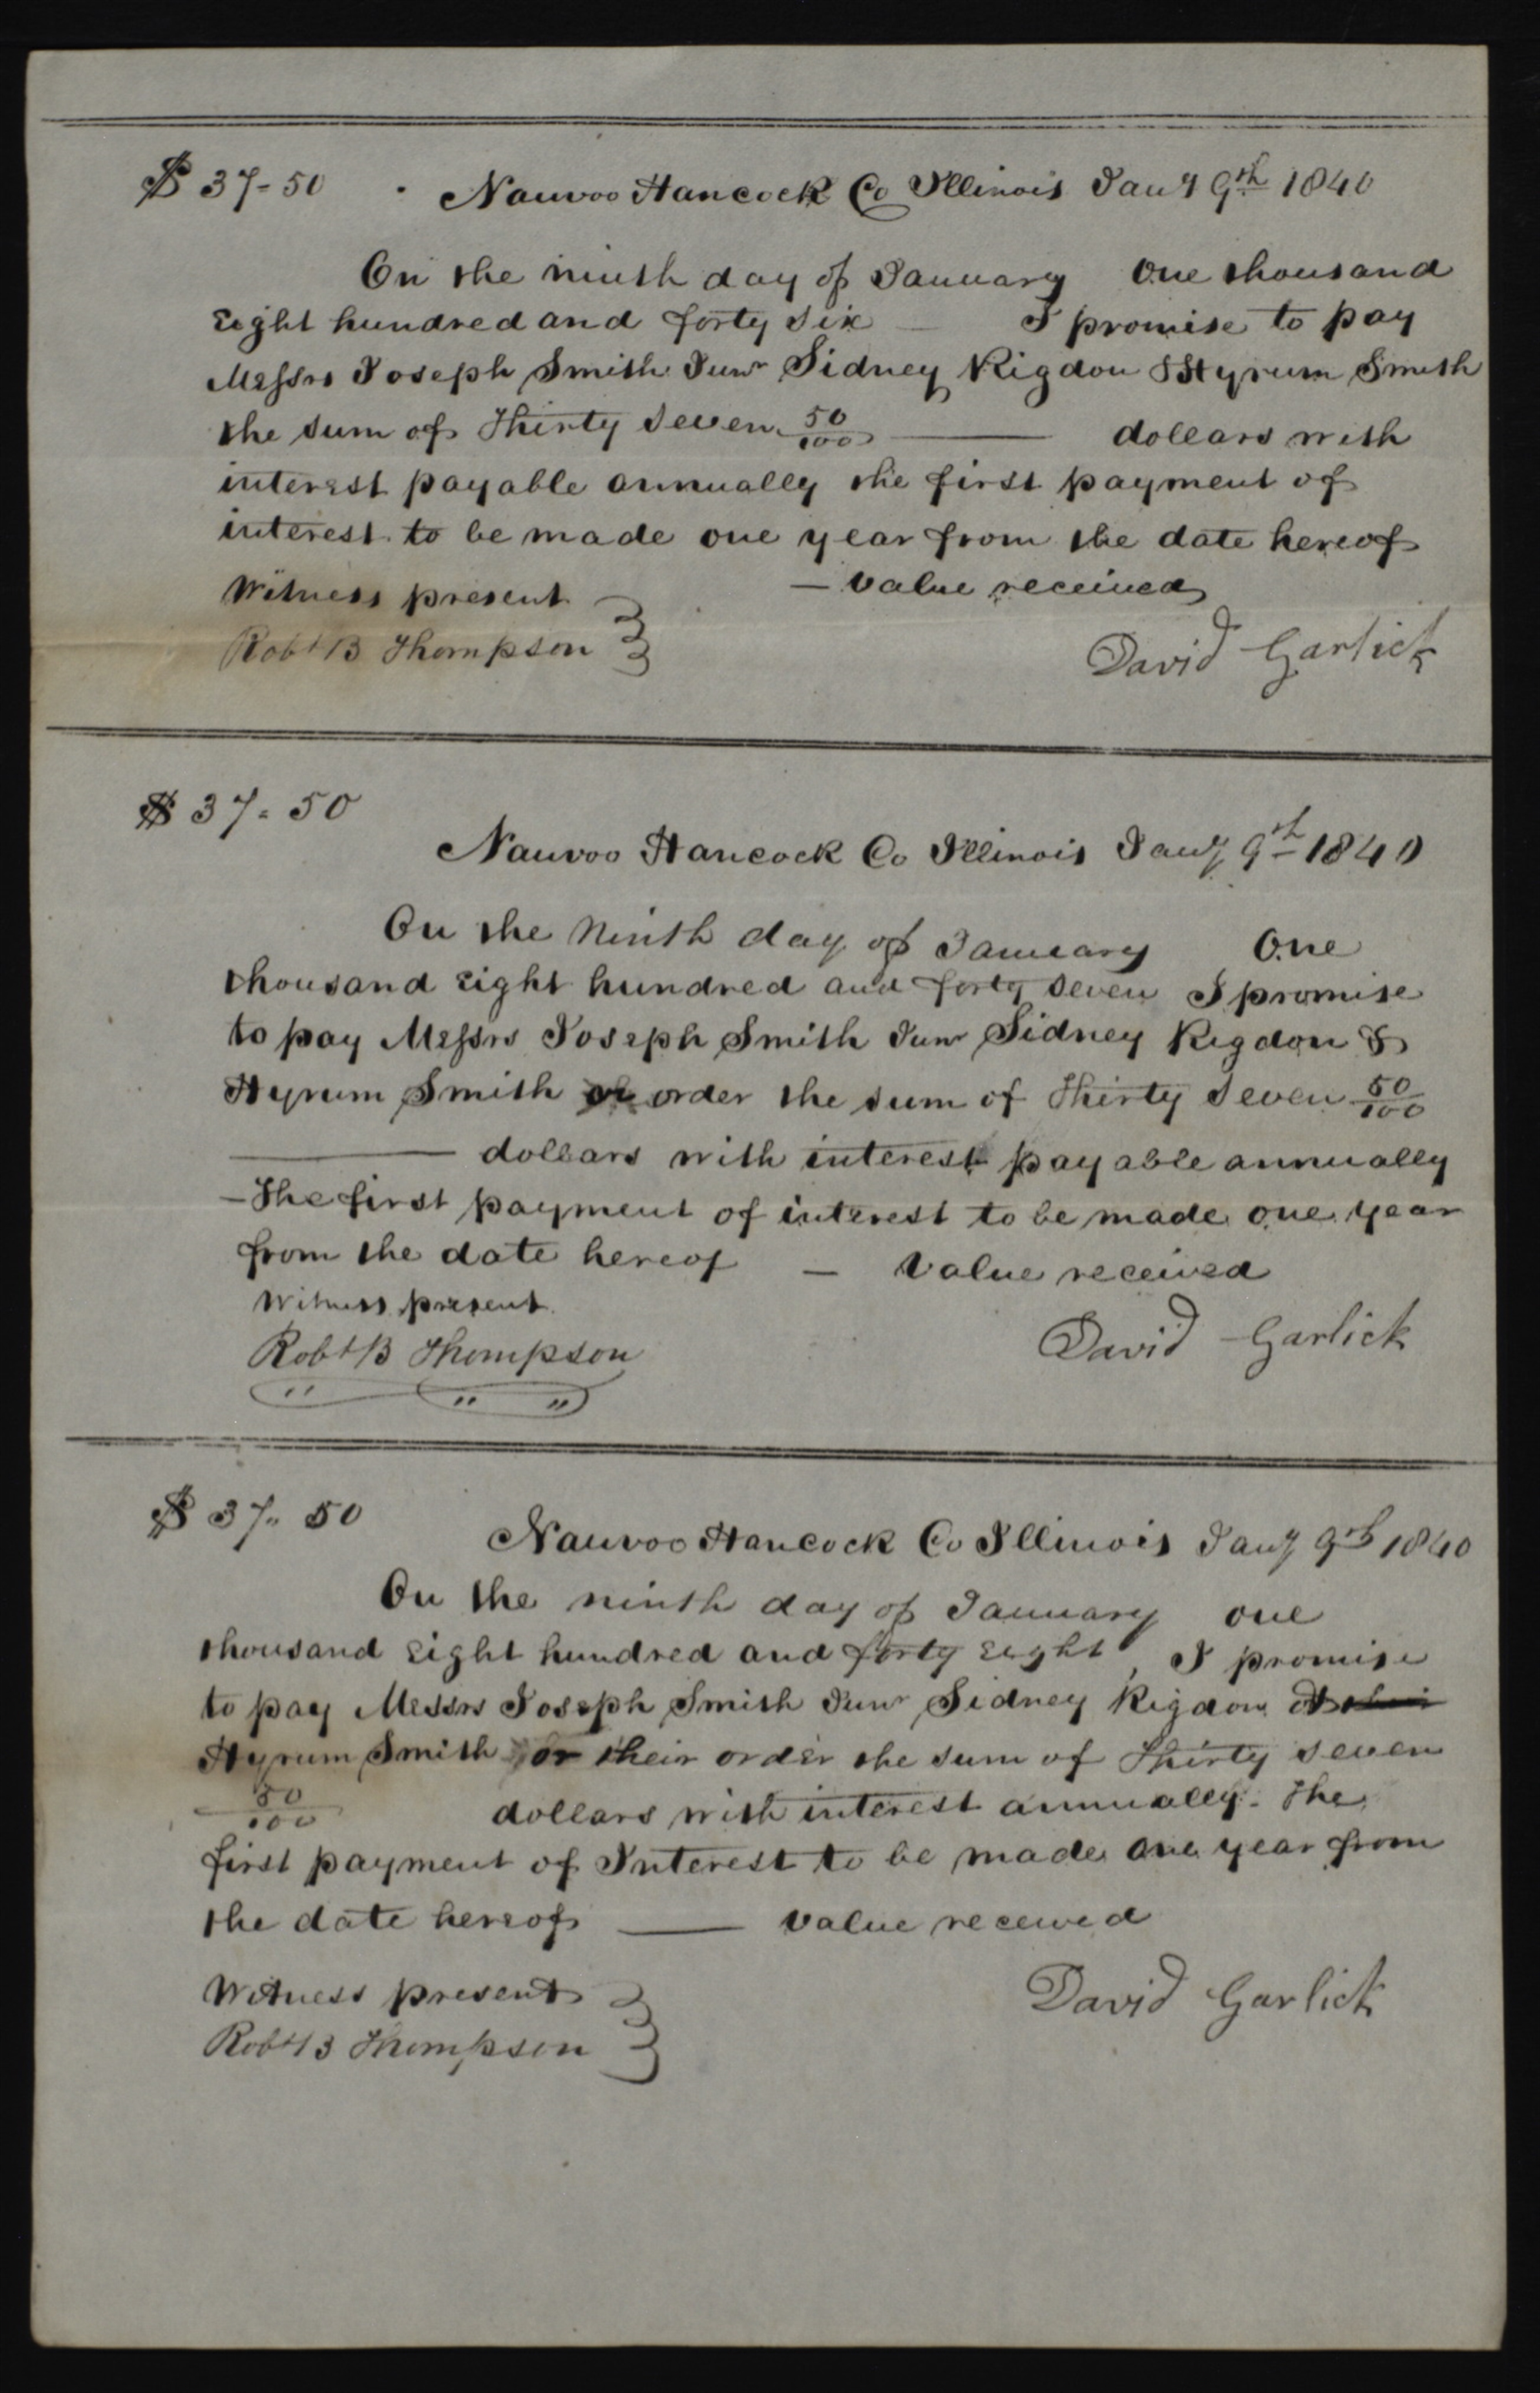 $37-50 Nauvoo Hancock Co Illinois Jany 9th 1840
On the ninth day of January One thousand
Eight hundred and forty six I promise to pay
Messrs Joseph Smith Junr Sidney Rigdon & Hyrum Smith
the sum of Thirty seven 50/100 dollars with
interest payable annually the first payment of
interest to be made one year from the date hereof
Witness present — value received
Robt B Thompson David Garlick
$37-50
Nauvoo Hancock Co Illinois Jany 9th 1840
On the Ninth day of January One
thousand Eight hundred and forty seven I promise
to pay Messrs Joseph Smith Junr Sidney Rigdon &
Hyrum Smith or order the sum of Thirty seven 50/100
dollars with interest payable annually
– The first payment of interest to be made one year
from the date hereof — Value received
Witness present
Robt B Thompson David Garlick
$37" 50
Nauvoo Hancock Co Illinois Jany 9th 1840
On the ninth day of January one
thousand Eight hundred and forty Eight, I promise
to pay Messrs Joseph Smith Junr Sidney Rigdon
Hyrum Smith or their order the sum of Thirty seven
50/100 dollars with interest annually. The
first payment of Interest to be made one year from
the date hereof — value received
Witness present David Garlick
Robt B Thompson